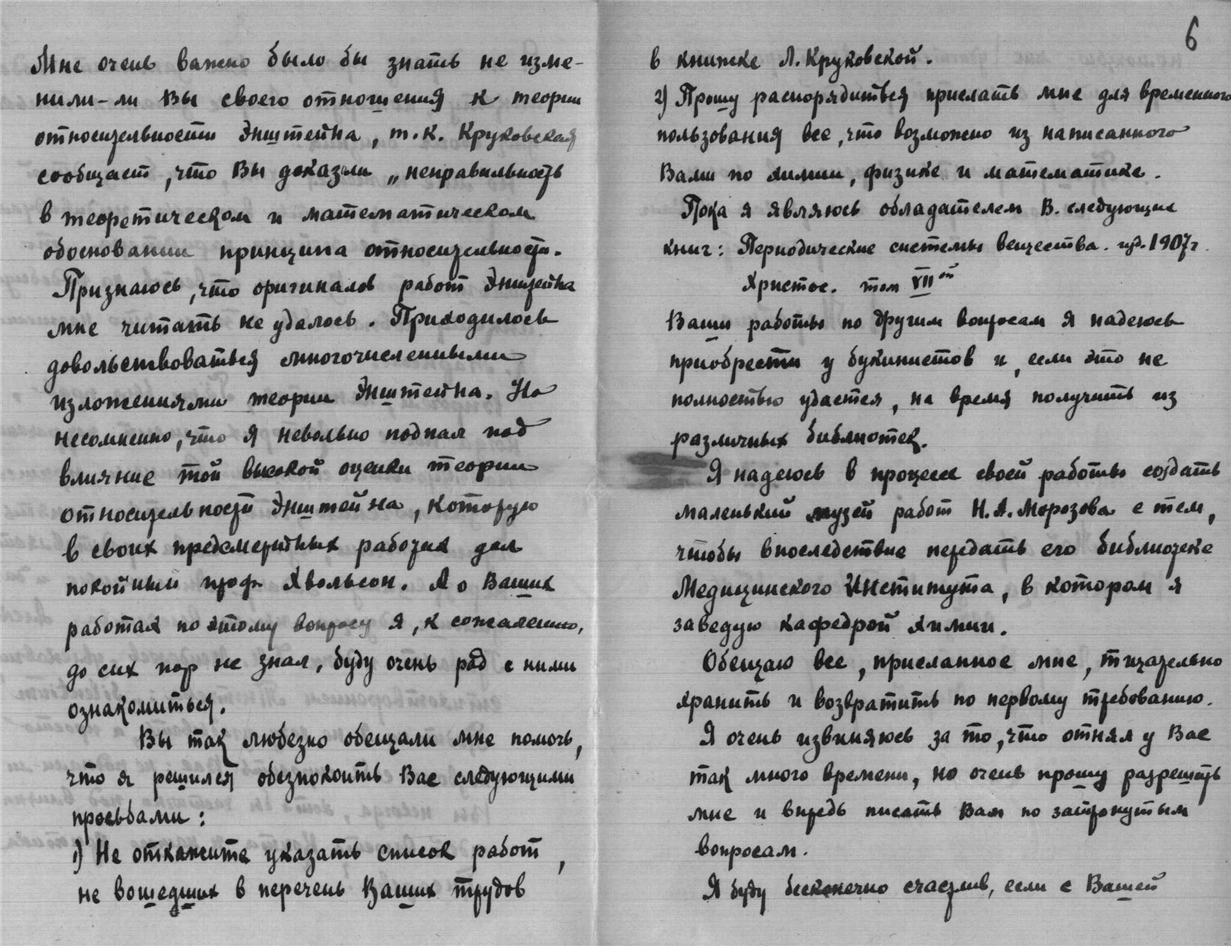 Мне очень важно было бы знать не изме-
нили-ли Вы своего отношения к теории
относительности Энштейна, т.к. Круковская
сообщает, что Вы доказали „неправильность
в теоретическом и математическом
обосновании принципа относительности.
Признаюсь, что оригиналов работ Энштейна
мне читать не удалось. Приходилось
довольствоваться многочисленными
изложениями теории Энштейна. Но
несомненно, что я невольно подпал под
влияние той высокой оценки теории
относительности Энштейна, которую
в своих предсмертных работах дал
покойный проф. Хвольсон. А о Ваших
работах по этому вопросу я, к сожалению,
до сих пор не знал, буду очень рад с ними
ознакомиться.
Вы так любезно обещали мне помочь,
что я решился обезпокоить Вас следующими
просьбами:
1) Не откажите указать список работ,
не вошедших в перечень Ваших трудов
6
в книжке Л. Круковской.
2) Прошу распорядиться прислать мне для временного
пользования все, что возможно из написанного
Вами по химии, физике и математике.
Пока я являюсь обладателем В. следующих
книг: Периодические системы вещества. изд. 1907 г.
Христос. том VII ой
Ваши работы по другим вопросам я надеюсь
приобрести у букинистов и, если это не
полностью удастся, на время получить из
различных библиотек.
Я надеюсь в процессе своей работы создать
маленький музей работ Н.А. Морозова с тем,
чтобы впоследствие передать его библиотеке
Медицинского Института, в котором я
заведую кафедрой химии.
Обещаю все, присланное мне, тщательно
хранить и возвратить по первому требованию.
Я очень извиняюсь за то, что отнял у Вас
так много времени, но очень прошу разрешить
мне и впредь писать Вам по затронутым
вопросам.
Я буду бесконечно счастлив, если с Вашей